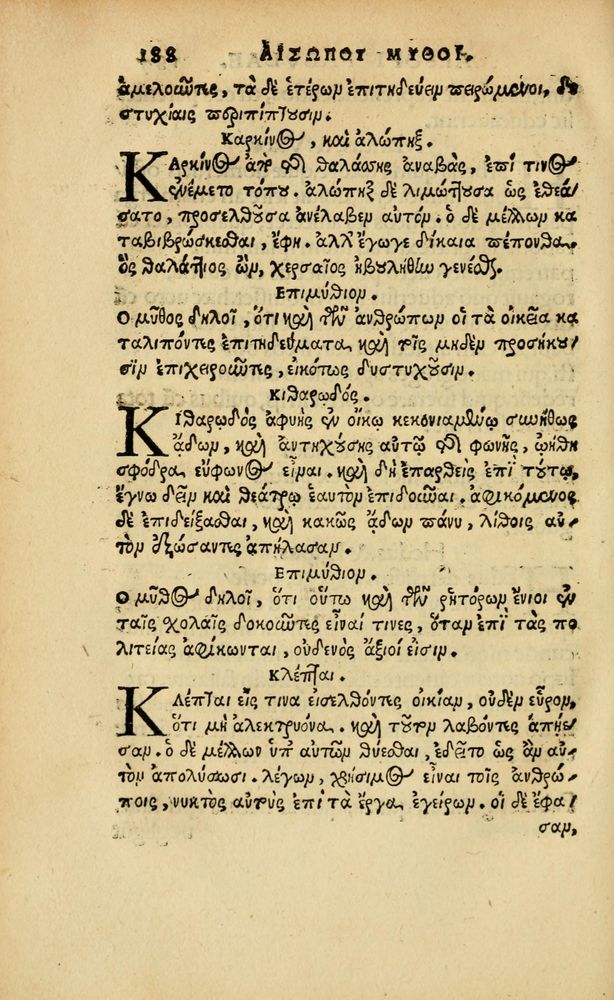 188 ΑΙΣΩΠΟΥ ΜΥΘΟΙ.
ἀμελοῦντες, τὰ δὲ ἑτέρων ἐπιτηδεύειν πειρώμενοι, δυ
στυχίαις περιπίπτουσιν.
Καρκίνος, καὶ ἀλώπηξ.
ΚΑρκίνος ἀπὸ τῆς θαλάσσης ἀναβὰς, ἐπί τινος
ἐνέμετο τόπου. ἀλώπηξ δὲ λιμώττουσα ὡς ἐθεά
σατο, προσελθοῦσα ἀνέλαβεν αὐτόν. ὁ δὲ μέλλων κα
ταβιβρώσκεσθαι, ἔφη. ἀλλ' ἔγωγε δίκαια πέπονθα.
ὃς θαλάττιος ὢν, χερσαῖος ἠβουλήθην γενέσθαι.
Επιμύθιον.
Ο μῦθος δηλοῖ, ὅτι καὶ τῶν ἀνθρώπων οἱ τὰ οἰκεῖα κα
ταλιπόντες ἐπιτηδεύματα, καὶ τοῖς μηδὲν προσήκου
σιν ἐπιχειροῦντες, εἰκότως δυστυχοῦσιν.
Κιθαρῳδός.
ΚΙθαρῳδὸς ἀφυὴς ἐν οἴκῳ κεκονιαμένῳ συνήθως
ᾄδων, καὶ ἀντηχούσης αὐτῷ τῆς φωνῆς, ᾠήθη
σφόδρα εὔφωνος εἶναι. καὶ δὴ ἐπαρθεὶς ἐπὶ τούτῳ,
ἔγνω δεῖν καὶ θεάτρῳ ἑαυτὸν ἐπιδοῦναι. ἀφικόμενος
δὲ ἐπιδείξασθαι, καὶ κακῶς ᾄδων πάνυ, λίθοις αὐ
τὸν ἐξώσαντες ἀπήλασαν.
Επιμύθιον.
Ο μῦθος δηλοῖ, ὅτι οὕτω καὶ τῶν ῥητόρων ἔνιοι ἐν
ταῖς χολαῖς δοκοῦντες εἶναί τινες, ὅταν ἐπὶ τὰς πο
λιτείας ἀφίκωνται, οὐδενὸς ἄξιοί εἰσιν.
Κλέπται.
ΚΛέπται εἴς τινα εἰσελθόντες οἰκίαν, οὐδὲν εὗρον,
ὅτι μὴ ἀλεκτρυόνα. καὶ τοῦτον λαβόντες ἀπῄε
σαν. ὁ δὲ μέλλων ὑπ' αὐτῶν θύεσθαι, ἐδεῖτο ὡς ἂν αὐ
τὸν ἀπολύσωσι. λέγων, χρήσιμος εἶναι τοῖς ἀνθρώ
ποις, νυκτὸς αὐτοὺς ἐπὶ τὰ ἔργα ἐγείρων. οἱ δὲ ἔφα
σαν,